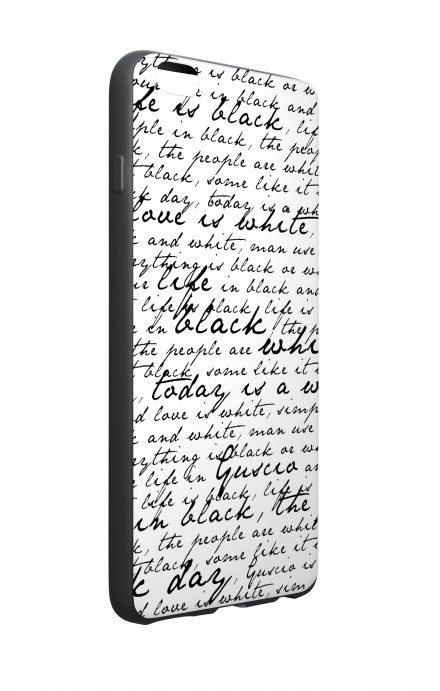 is black or w
in black and
fe is black, lif
ple in black, the peop
k, the people are whit
t black, some like it i
k day, today is a wh
love is white,
k and white, man use
rything is black or w
ur life in black and
t life is black, life is
r in black, the p
the people are whi
t black, some like it i
, today is a w
d love is white, simp
k and white, man use
rything is black or w
r life in Guscio an
t life is black, life is
in black, the
k, the people are whit
t black, some like it i
k day, Guscio is
d love is white, sim